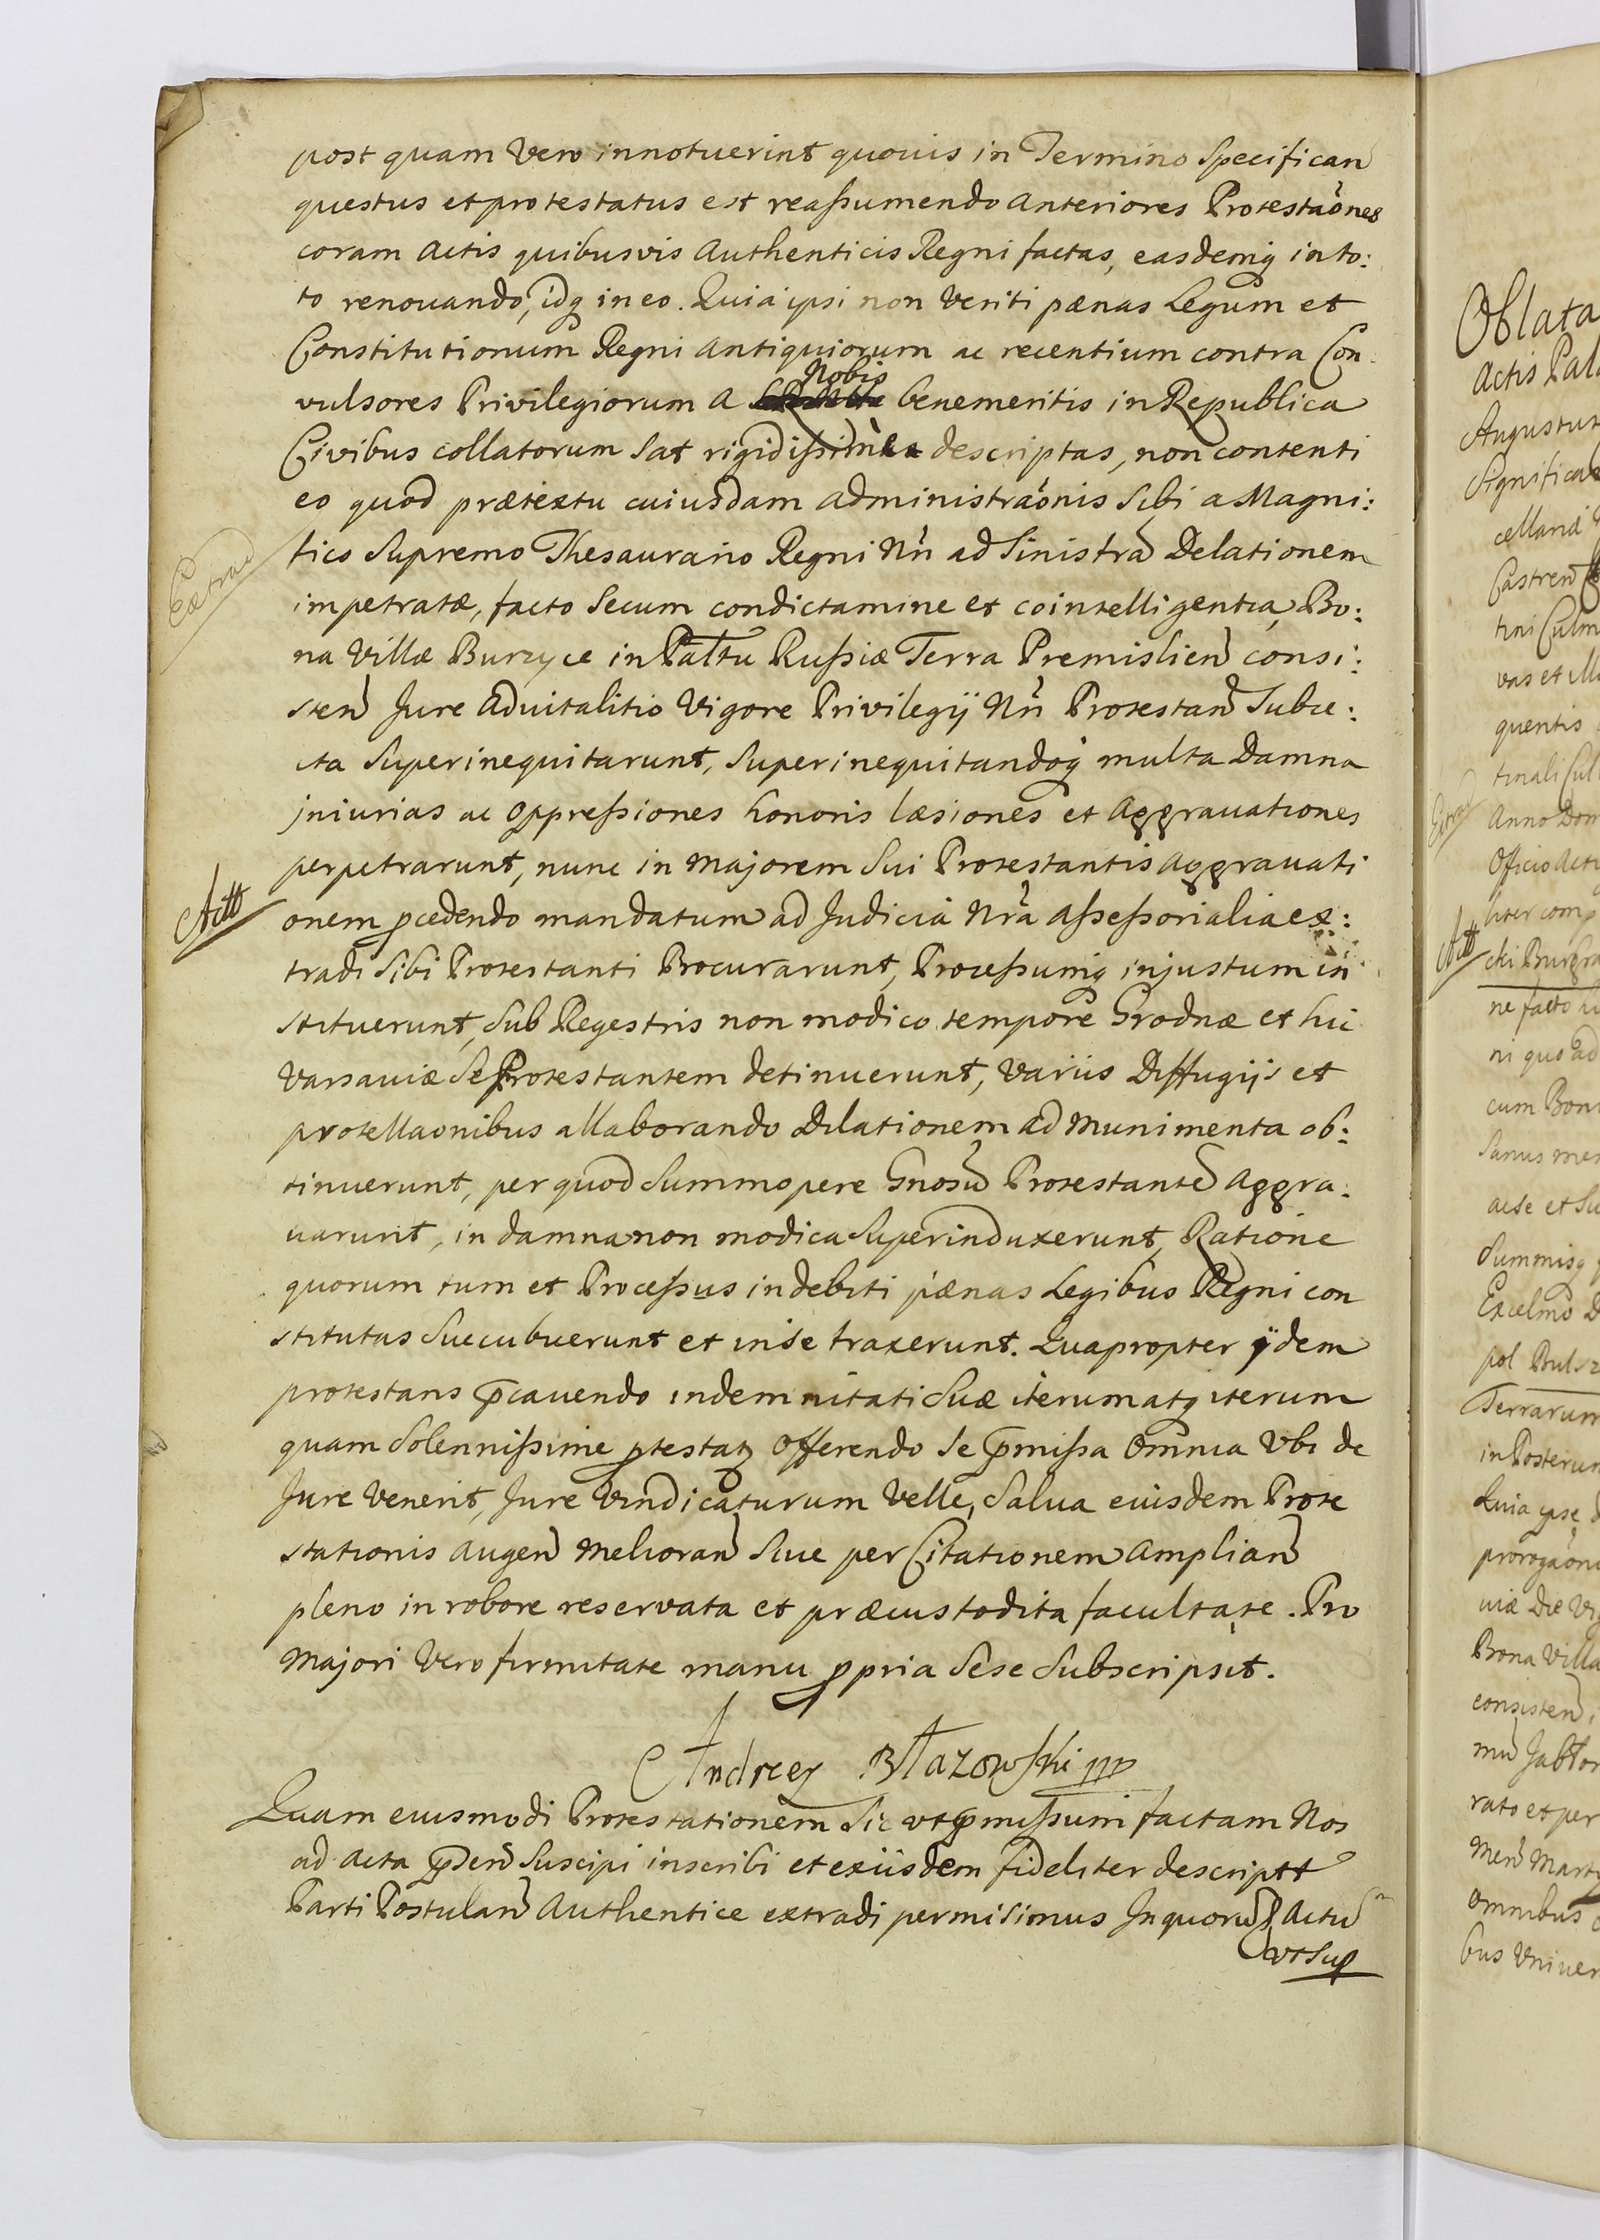 post quam Vero innotuerint quouis in Termino Specifican
questus et protestatus est reaſsumendo anteriores Protestaões
coram Actis quibusvis Authenticis Regni factas, easdemq in to:
to renouando, idq in eo. Quia ipsi non Veriti pænas Legum et
Constitutionum Regni antiquiorum ac recentium contra Con
vulsores Privilegiorum a Nobis benemeritis in Republica
Civibus collatorum Sat rigidiſsime descriptas, non contenti
eo quod prætextu cuiusdam administraõnis Sibi a Magni:
fico Supremo Thesaurario Regni Nrı̃ ad Sinistrã Delationem
impetratæ, facto Secum condictamine et cointelligentia, Bo:
na Villæ Burzyce in Palttu Ruſsiæ Terra Premislien consi:
sten Jure Aduitalitio Vigore Privilegij Nrı̃ Protestan Subie:
cta Superinequitarunt, Superinequitandoq multa Damna
jniurias ac oppreſsiones honoris læsiones et Aggrauationes
perpetrarunt, nunc in Majorem Sui Protestantis aggrauati
onem pcedendo mandatum ad Judicia Nrã aſseſsorialia ex:
tradi Sibi Protestanti Procurarunt, Proceſsumq injustum in
stituerunt, Sub Regestris non modico tempore Grodnæ et hic
Varsauiæ Se Protestantem detinuerunt, Variis Diffugijs et
protellaonibus allaborando Dilationem ad Munimenta ob:
tinuerunt, per quod Summopere Gnosũ Protestantẽ Aggra:
uarunt, in damna non modica Superinduxerunt, Ratione
quorum tum et Proceſsus indebiti pænas Legibus Regni con
stitutas Succubuerunt et in se traxerunt. Quapropter ijdem
protestans p̃cauendo indemnitati Suæ iterum atq iterum
quam Solenniſsime ptestatz Offerendo Se p̃miſsa Omnia Vbi de
Jure Venerit, Jure Vindicaturum Velle, Salua eiusdem Prote
stationis augen Melioran Siue per Citationem Amplian
pleno in robore reservata et præcustodita facultate. Pro
Majori Vero firmitate manu ppria Sese Subscripsit.
Andrzey Błazowski mp
Quam eiusmodi Protestationem Sic vt p̃miſsum factam Nos
ad Acta p̃den Suscipi inscribi et ex iisdem fideliter descriptt
Parti Postulan Authentice extradi permisimus In quorũ Actũ
vt Sup
Extrad
Actt
Oblata
Actis Pal
Augustus
Significa
Castren
vas et
quentis
Anno Dom
Officio Acti
ne facto
ni quo ad
cum Bon
Sanus men
ac se et Su
Summisq
Excelmo D
pol
Terrarum
in Posterum
Quia ipse
prorogãon
Bona Villa
consisten
rato et per
Omnibus
bus Vniver